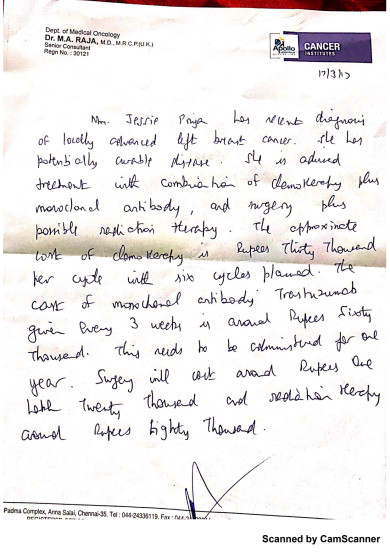 Dept. of Medical Oncology
Dr. M.A. RAJA, M.D., M.R.C.P.(U.K.)
Senior Consultant
Regn No. : 30121
Apollo
CANCER
INSTITUTES
17/3/17
Mrs. Jessie Priya has recent diagnosis
of locally advanced left breast cancer. She has
potentially curable disease. She is advised
treatment with combination of chemotherapy plus
monoclonal antibody, and surgery plus
possible radiation therapy. The approximate
cost of chemotherapy is Rupees Thirty Thousand
per cycle with six cycles planned. The
cost of monoclonal antibody Trastuzumab
given every 3 weeks is around Rupees Sixty
Thousand. This needs to be administered for one
year. Surgery will cost around Rupees One
Lakh Twenty Thousand and radiation therapy
around Rupees Eighty Thousand.
Padma Complex, Anna Salai, Chennai-35. Tel : 044-24336119. Fax :
Scanned by CamScanner